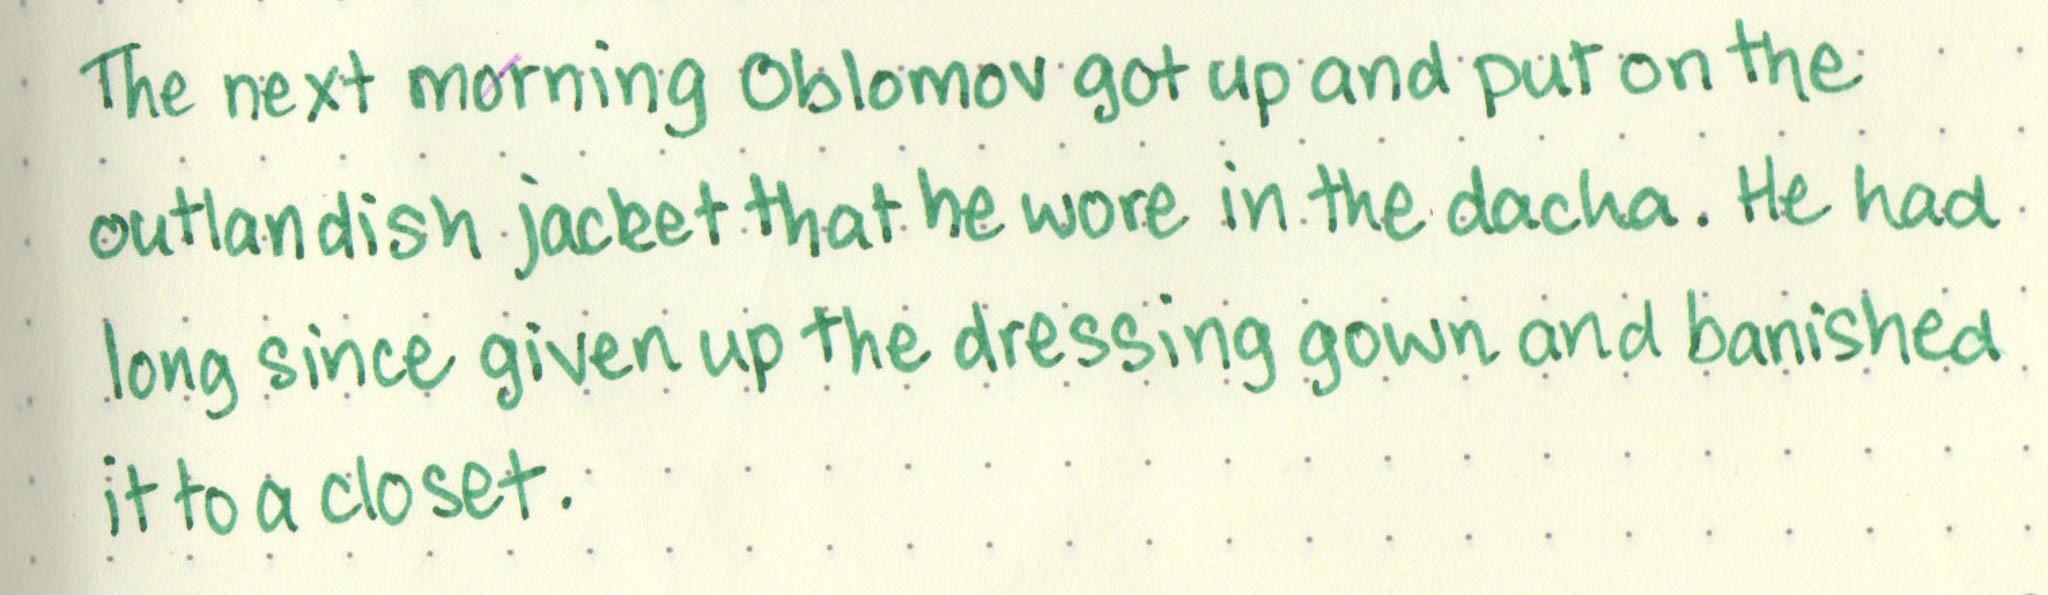 The next morning Oblomov got up and put on the
outlandish jacket that he wore in the dacha. He had
long since given up the dressing gown and banished
it to a closet.